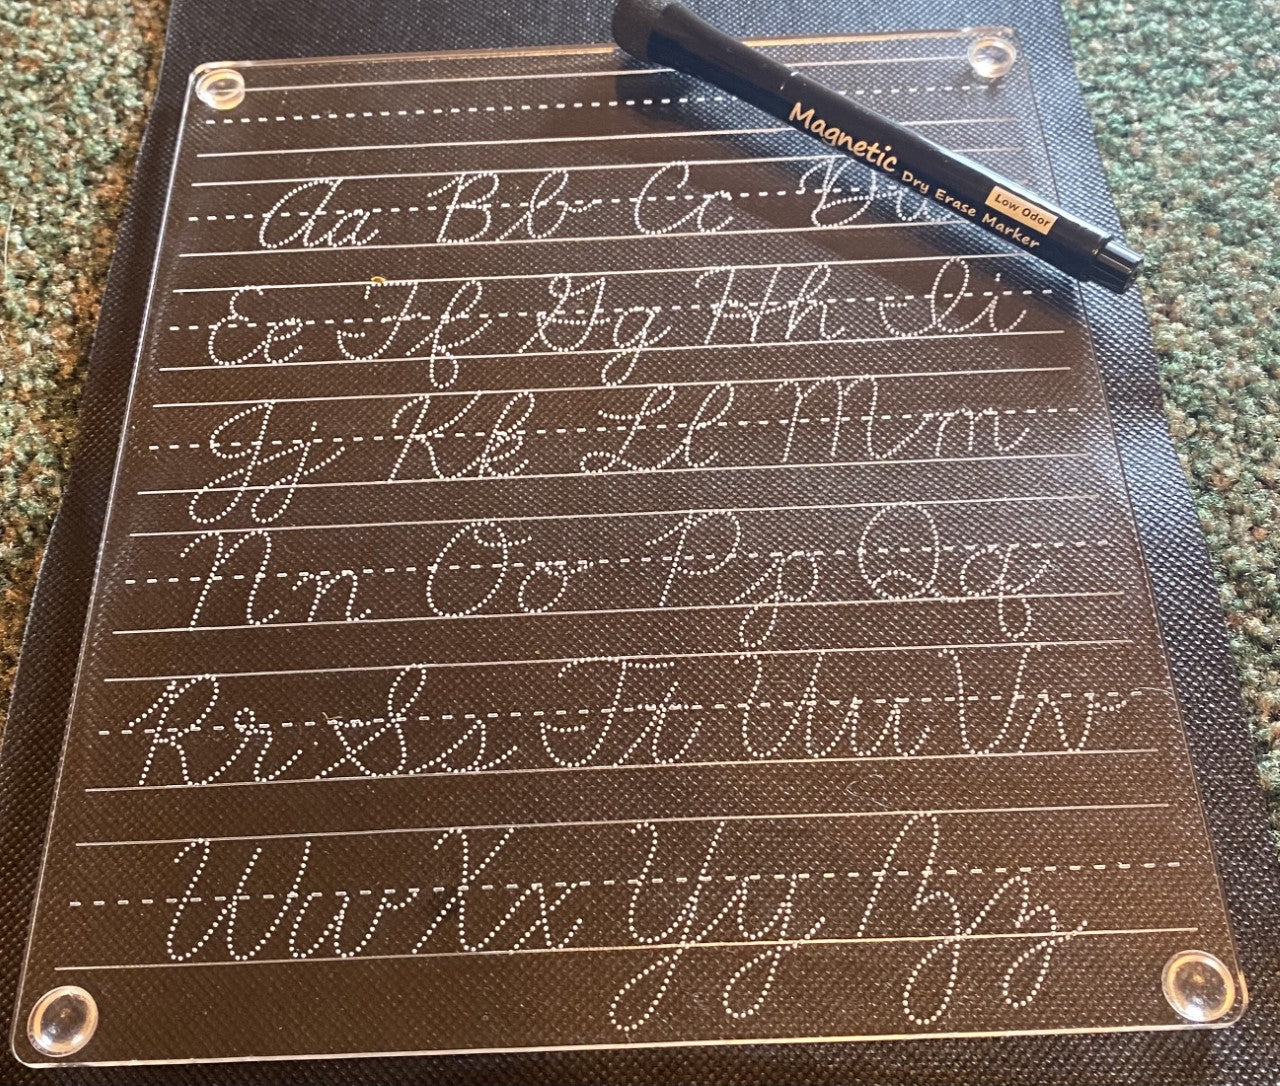 Magnetic Dry Erase Marker
Low Odor
Aa Bb Cc Dd
Ee Ff Gg Hh Ii
Jj Kk Ll Mm
Nn Oo Pp Qq
Rr Ss Tt Uu Vv
Ww Xx Yy Zz